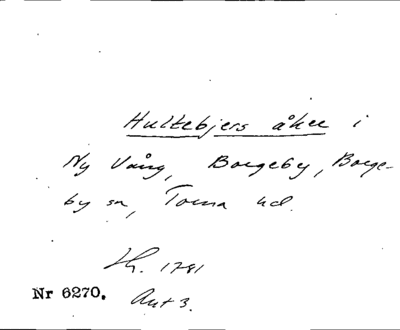 Hultebjers åker i
Ny Vång, Borgeby, Borge-
by sn, Torna hd.
Lh. 1781
Nr 6270. Akt 3.